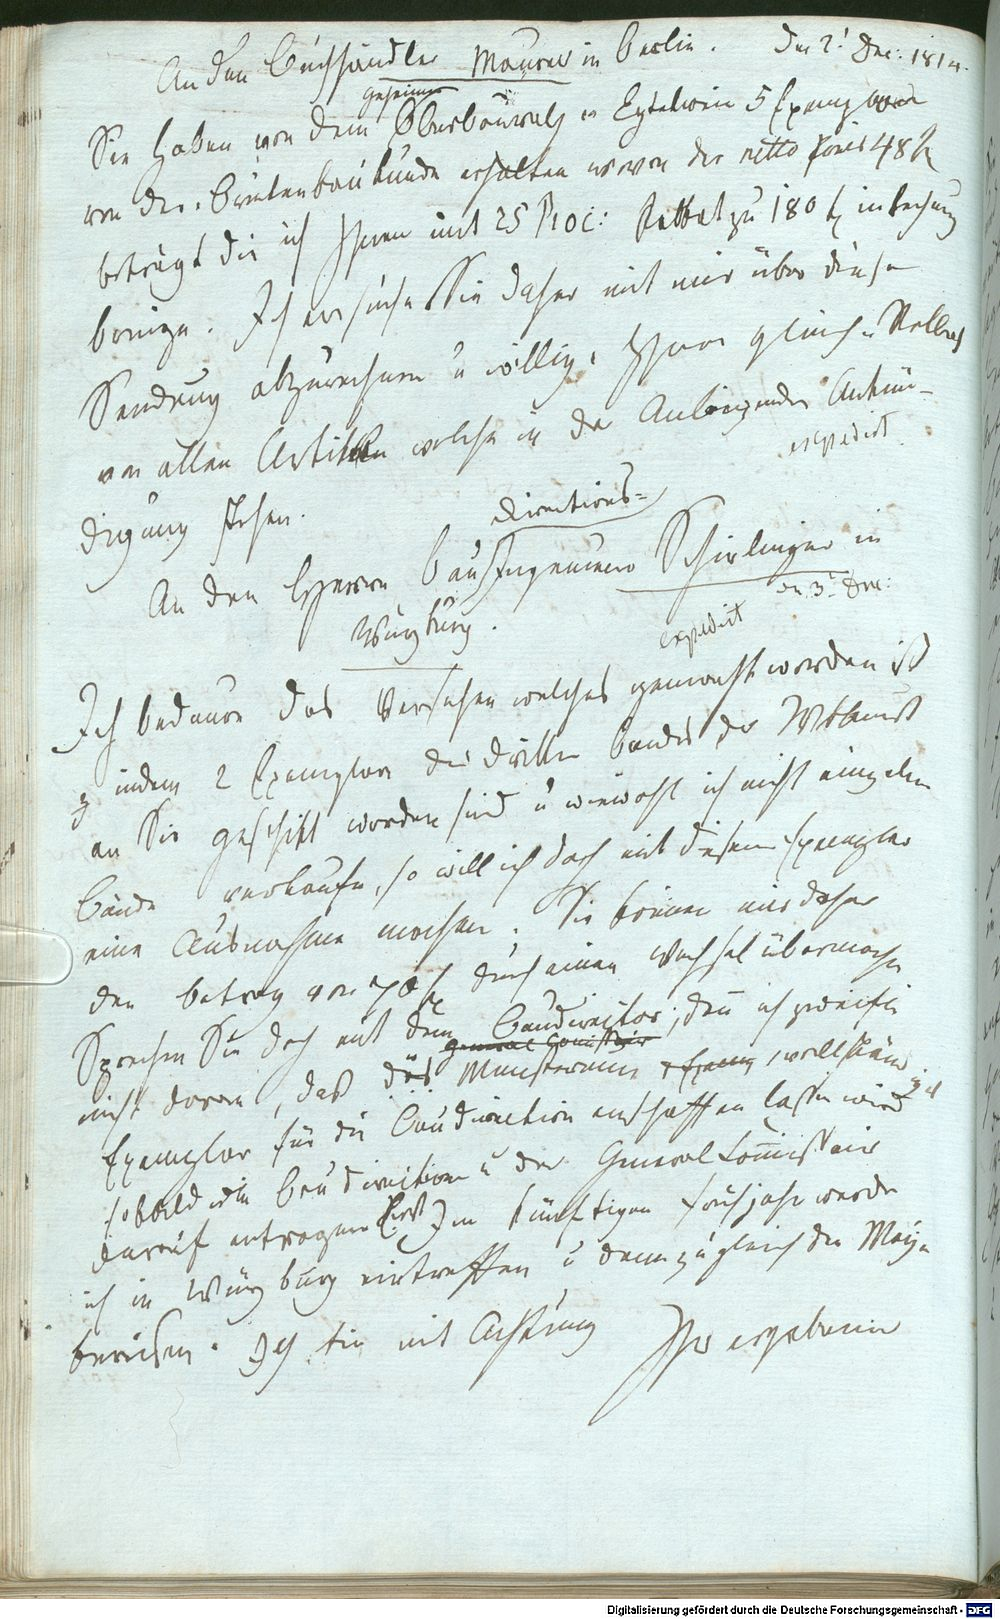 An den Buchhändler Maurer in Berlin. Den 2t Dec: 1814.
geheimen
Sie haben von dem Oberbaurath Eytelwein 5 Exemplare
von der Brükenbaukunde erhalten wovon der netto Preis 48
beträgt die ich Ihnen mit 25 Proc: Rabbat zu 180 f in Rechnung
bringe. Ich ersuche Sie daher mit mir über diese
Sendung abzurechnen u willige Ihnen gleichen Rabbat
von allen Artikeln welche in der Anliegenden Ankün-
expedirt
digung stehen.
Directions-
An den Herrn Bau Ingenieur Schierlinger in
Würzburg. den 3t Dec:
expedirt
Ich bedaure das Versehen welches gemacht worden ist
indem 2 Exemplare des dritten Bandes der Wbkunst
an Sie geschikt worden sind u wiewohl ich nicht einzelne
Bände verkaufe, so will ich doch mit diesem Exemplar
eine Ausnahme machen. Sie können mir daher
den Betrag von durch einen Wechsel übermachen
Sprechen Sie doch mit dem Baudirector; denn ich zweifle
general Comissair
nicht daran, daß das Ministerium vollständige
Exemplar für die Baudirection anschaffen lassen wird
sobald die Baudirection u der General Commissair
darauf antragen. Im künftigen Frühjahr werde
ich in Würzburg eintreffen u dann zugleich den Mayn
bereisen. Ich bin mit Achtung Ihr ergebener
Digitalisierung gefördert durch die Deutsche Forschungsgemeinschaft - DFG